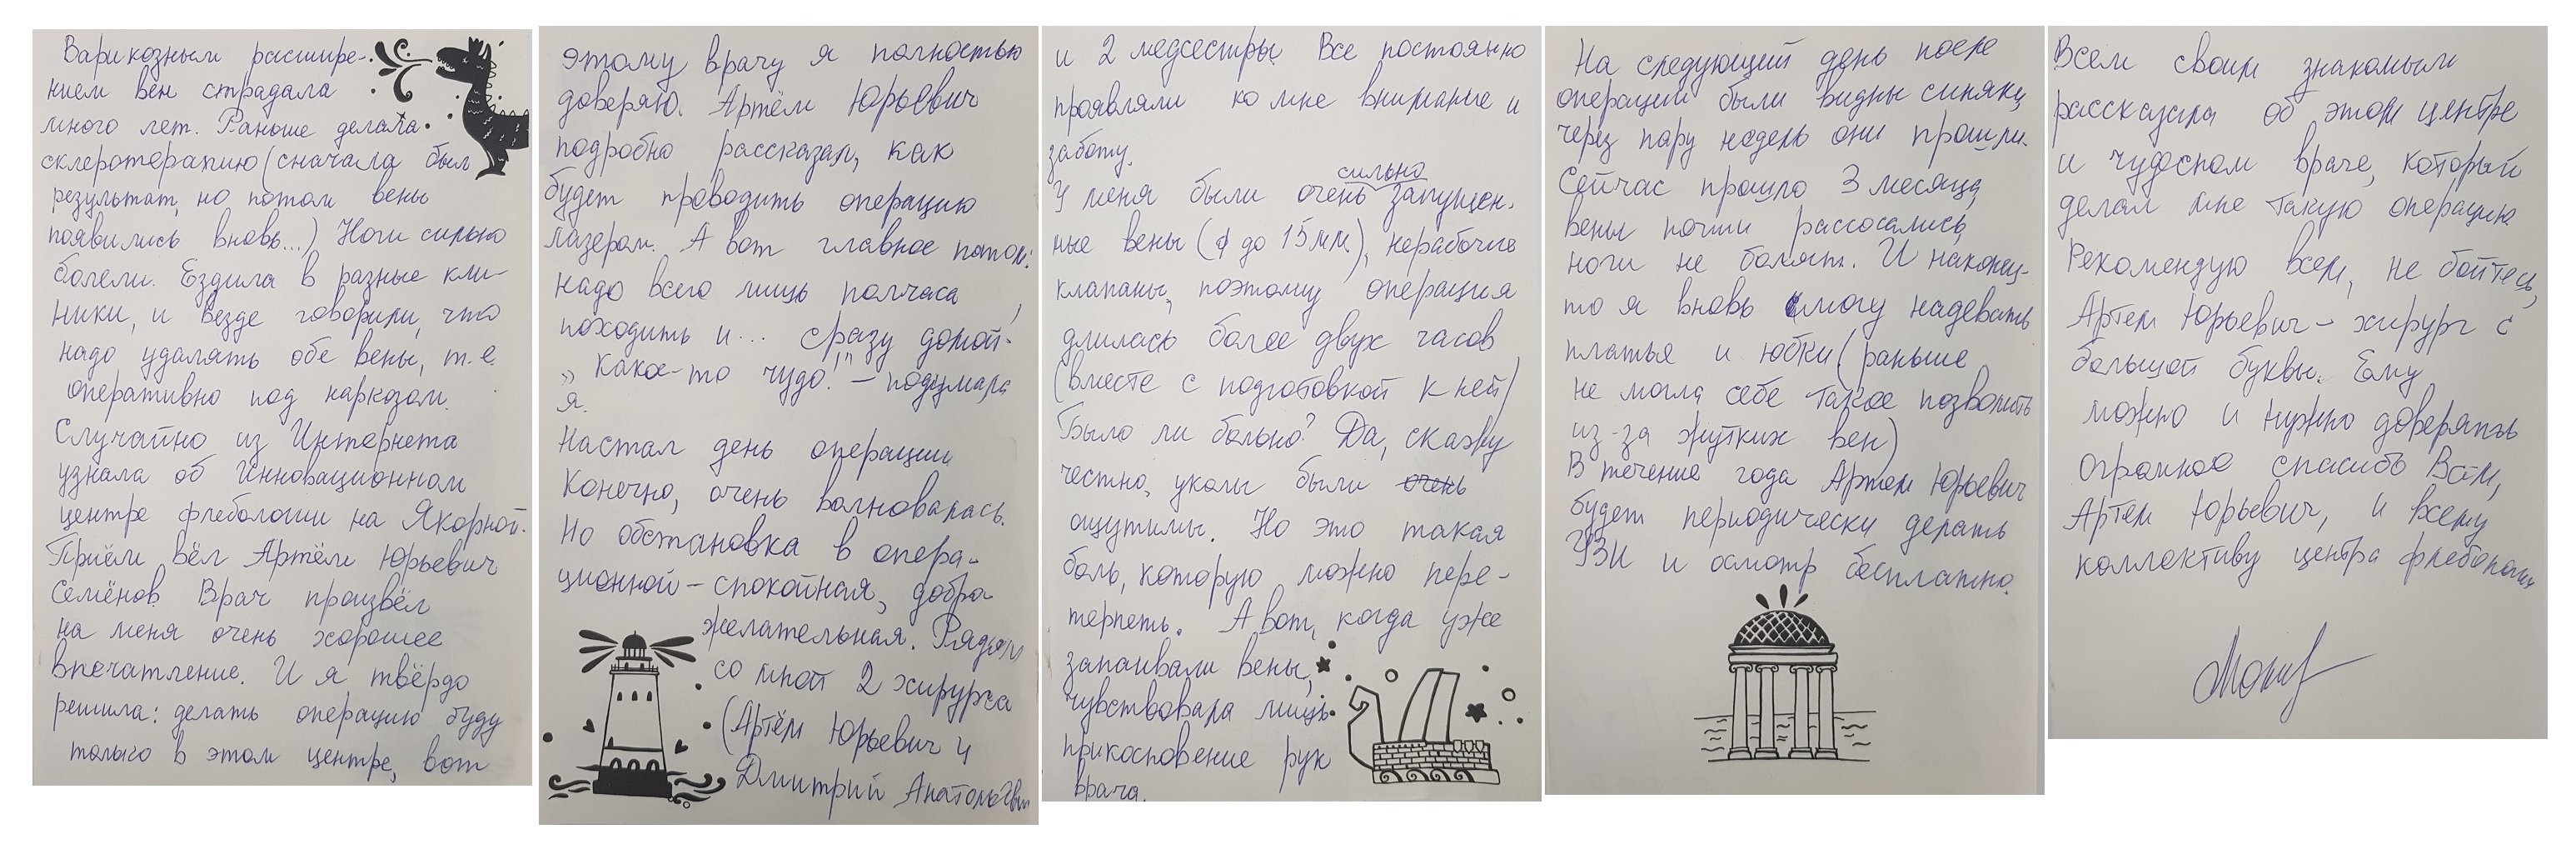 Варикозным расшире-
нием вен страдала
много лет. Раньше делала
склеротерапию (сначала был
результат, но потом вены
появились вновь...) Ноги сильно
болели. Ездила в разные кли-
ники, и везде говорили, что
надо удалять обе вены, т.е.
оперативно под наркозом.
Случайно из Интернета
узнала об Инновационном
центре флебологии на Якорной.
Приём вёл Артём Юрьевич
Семёнов. Врач произвёл
на меня очень хорошее
впечатление. И я твёрдо
решила: делать операцию буду
только в этом центре, вот
этому врачу я полностью
доверяю. Артём Юрьевич
подробно рассказал, как
будет проводить операцию
лазером. А вот главное потом:
надо всего лишь полчаса
походить и... сразу домой.
„Какое-то чудо!" – подумала
я.
Настал день операции.
Конечно, очень волновалась.
Но обстановка в опера-
ционной – спокойная, добро
желательная. Рядом
со мной 2 хирурга
(Артём Юрьевич и
Дмитрий Анатольевич
и 2 медсестры. Все постоянно
проявляли ко мне внимание и
заботу.
сильно
У меня были очень запущен-
ные вены (ϕ до 15 мм.), нерабочие
клапаны, поэтому операция
длилась более двух часов
(вместе с подготовкой к ней)
Было ли больно? Да, скажу
честно, уколы были очень
ощутимы. Но это такая
боль, которую можно пере-
терпеть. А вот, когда уже
запаивали вены,
чувствовала лишь
прикосновение рук
врача.
На следующий день после
операции были видны синяки,
через пару недель они прошли.
Сейчас прошло 3 месяца,
вены почти рассосались,
ноги не болят. И наконец-
то я вновь смогу надевать
платья и юбки (раньше
не могла себе такое позволить
из-за жутких вен)
В течение года Артем Юрьевич
будет периодически делать
УЗИ и осмотр бесплатно.
Всем своим знакомым
рассказала об этом центре
и чудесном враче, который
делал мне такую операцию.
Рекомендую всем, не бойтесь,
Артем Юрьевич – хирург с
большой буквы. Ему
можно и нужно доверять
Огромное спасибо Вам,
Артем Юрьевич, и всему
коллективу центра флебологии